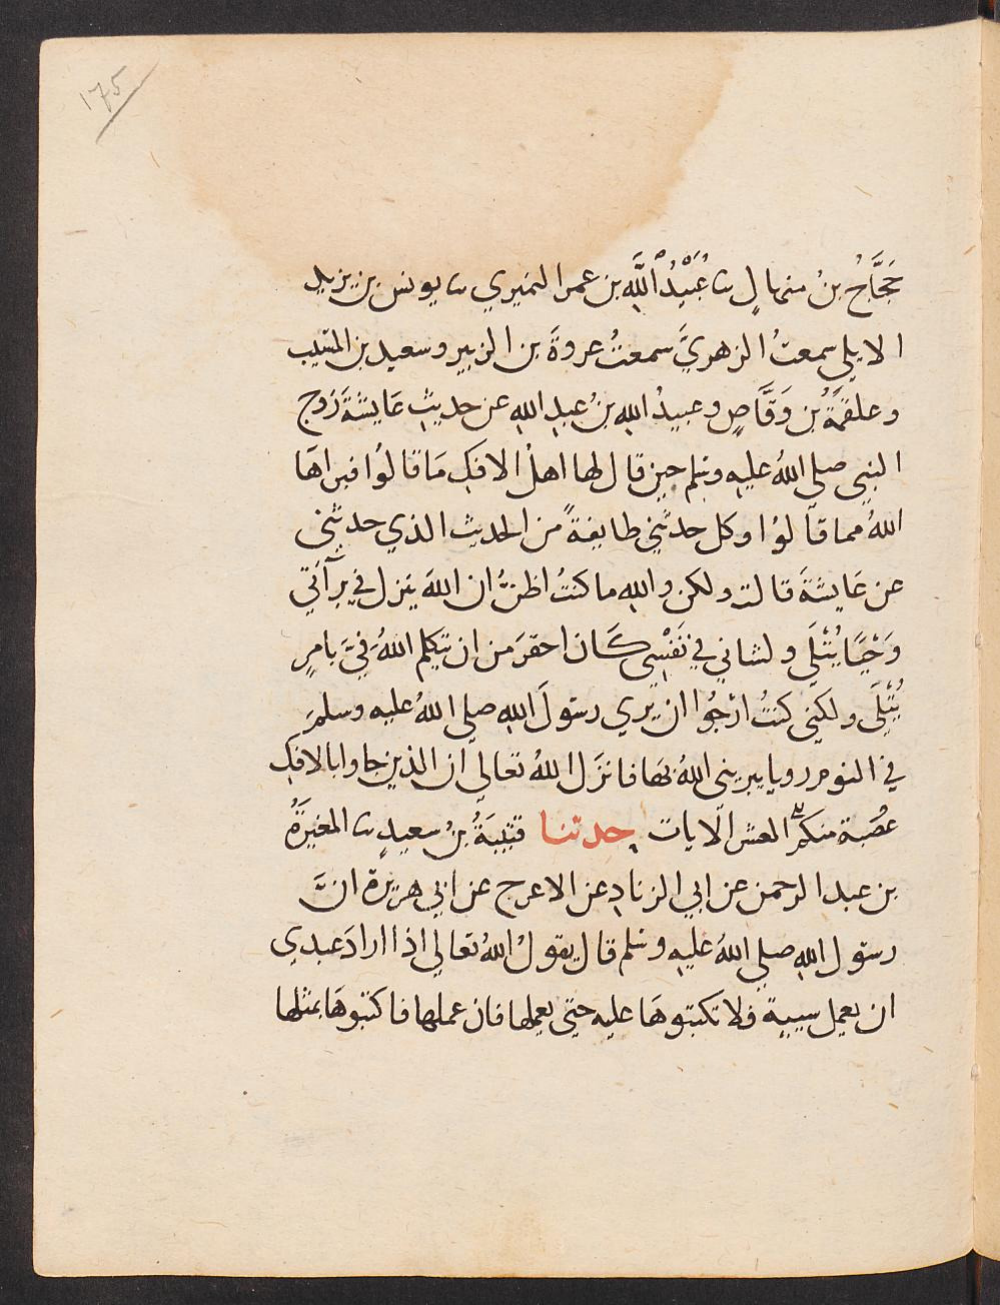 175
حَجَّاجُ بنُ منهالٍ ثنا عُبَيْدُ اللَّهِ بن عمر النميري ثنا يونس بن يزيد
الايلي سمعتُ الزهريَّ سمعتُ عروةَ بن الزبير وسعيد بن المسيب
وعلقمةَ بن وَقَّاصٍ وعبيدُ اللهِ بنُ عبدِ اللهِ عن حديثِ عَايشةَ زَوج
النبي صلي اللهُ عليهِ وسلم حين قال لها اهلُ الافكِ مَا قالوُا فبراهَا
اللهُ مما قالوُا وكل حدثني طايفةً من الحديث الذي حدثني
عن عَايشةَ قالت ولكن واللهِ ما كنتُ اظنُّ ان اللهَ ينزل في برآتي
وَحْيًا يُتْلَي ولشاني في نَفْسِي كَان احقَرَ من ان يتكلم اللهُ فيَّ بامرٍ
يُتْلَي ولكني كنتُ ارْجُوا ان يري رسَولَ اللهِ صلي اللهُ عليه وسلمَ
في النوم رويا يبريني اللهُ بهَا فانزَل اللهُ تعالي ان الذين جاوا بالافكِ
عُصْبة منكم العشر الآيات حدثنا قتيبَةُ بنُ سعيدٍ ثنا المغيرَةُ
بن عبد الرحمن عن ابي الزنادِ عن الاعرج عن ابي هريرة انَّ
رسَول اللهِ صلي اللهُ عليهِ وسلم قال يقولُ اللهُ تعالي اذا ارادَ عبدي
ان يعمل سيية فلا تكتبوهَا عليه حتي يعملها فان عملها فاكتبوهَا بمثلها